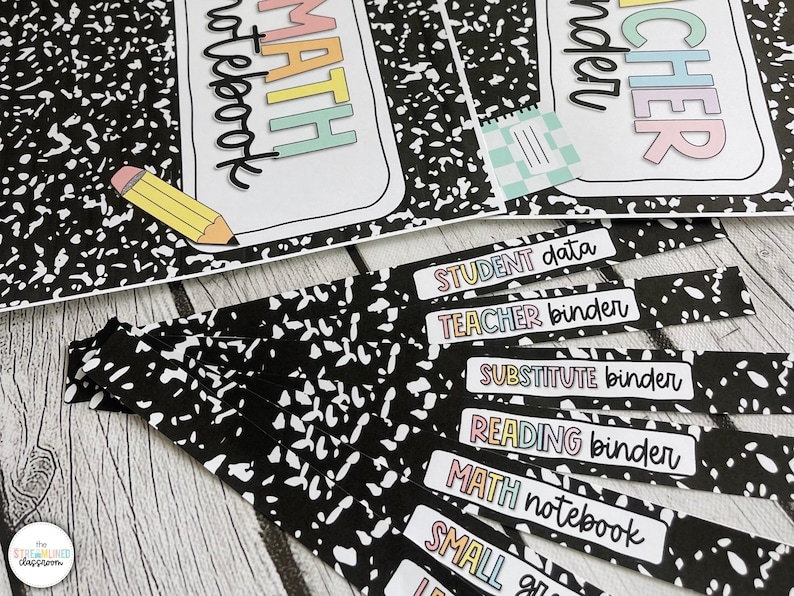 MATH
notebook
STUDENT data
TEACHER binder
SUBSTITUTE binder
READING binder
MATH notebook
SMALL
the
STREAMLINED
classroom